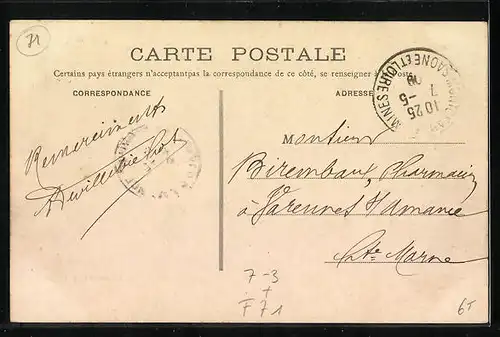 71
CARTE POSTALE
Certains pays étrangers n'acceptant pas la correspondance de ce côté, se renseigner à la Poste.
CORRESPONDANCE
ADRESSE
MINES
SAONE ET LOIRE
10 25
7 -5
09
Remerciments
Monsieur
Birembaux, Pharmacien
à Varennes s/ Amance
Hte Marne
7-3
+
F71
6T